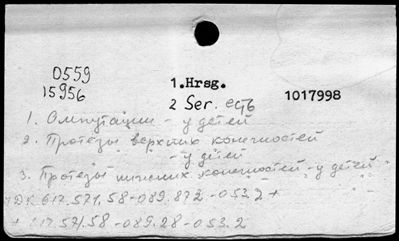 0559
15956
1.Hrsg.
2 Ser. егб
1017998
1. Ампутации - у детей
2. Протезы верхних конечностей
- у детей
3. Протезы нижних конечностей - у детей
УДК 617.571.58-089.872-053.2 +
+ 617.571.58-089.28-053.2